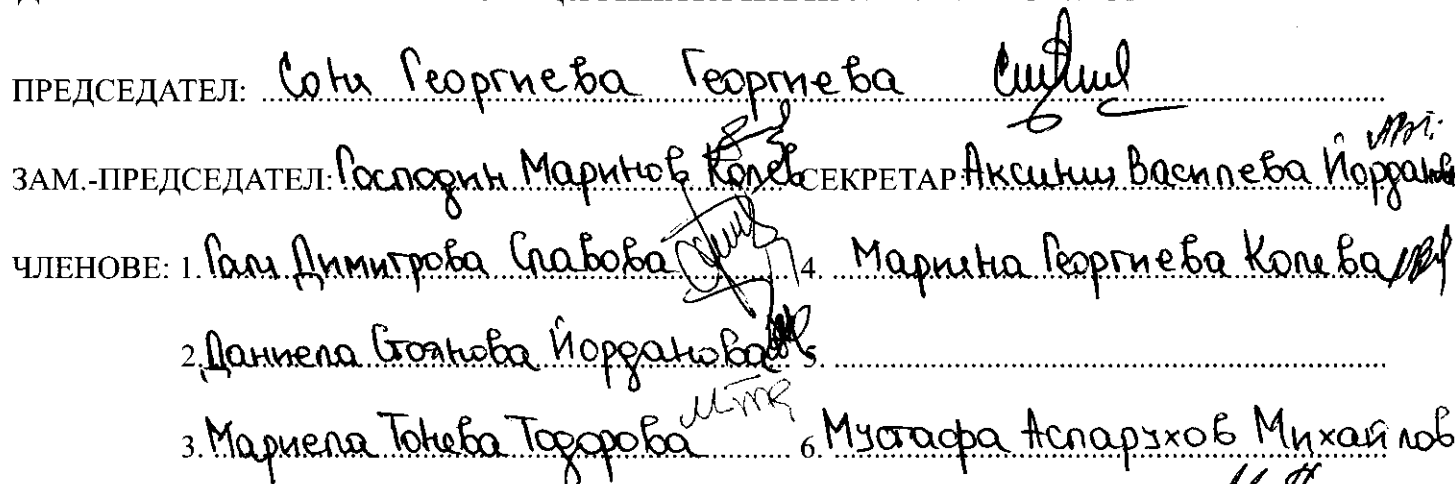 ПРЕДСЕДАТЕЛ: Соня Георгиева Георгиева
ЗАМ.-ПРЕДСЕДАТЕЛ: Господин Маринов Колев СЕКРЕТАР: Аксиния Василева Йорданова
ЧЛЕНОВЕ: 1. Галя Димитрова Славова 4. Марияна Георгиева Колева
2. Даниела Стоянова Йорданова 5.
3. Мариела Тонева Тодорова 6. Мустафа Аспарухов Михайлов